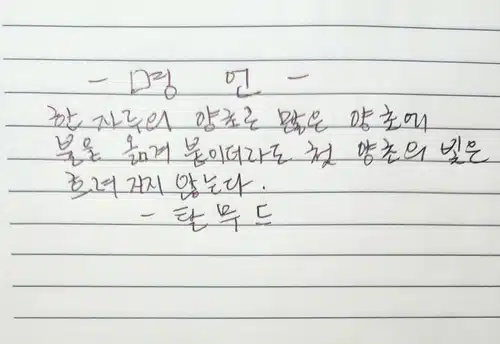 - 명 언 -
한 자루의 양초로 많은 양초에
불을 옮겨 붙이더라도 첫 양초의 빛은
흐려 지지 않는다.
- 탈무드